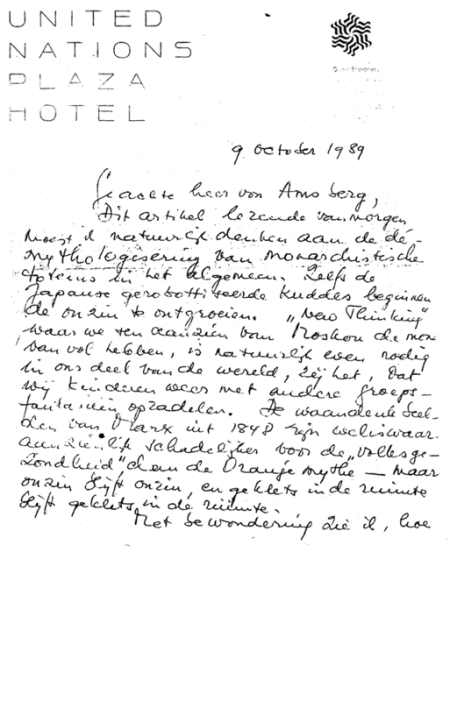 UNITED
NATIONS
PLAZA
HOTEL
9 october 1989
Geachte heer von Amsberg,
Dit artikel lezende vanmorgen
moest ik natuurlijk denken aan de dé-
mythologisering van monarchistische
totems in het algemeen. Zelfs de
Japanse gerobottiseerde kuddes beginnen
de onzin te ontgroeien. „New Thinking"
waar we ten aanzien van Moskou de mond
van vol hebben, is natuurlijk even nodig
in ons deel van de wereld, zij het, dat
wij kinderen weer met andere groeps-
fantasieën opzadelen. De waandenkbeel-
den van Marx uit 1848 zijn weliswaar
aanzienlijk schadelijker voor de „volksge-
zondheid" dan de Oranje mythe — maar
onzin blijft onzin, en geklets in de ruimte
blijft geklets in de ruimte.
Met bewondering zie ik, hoe